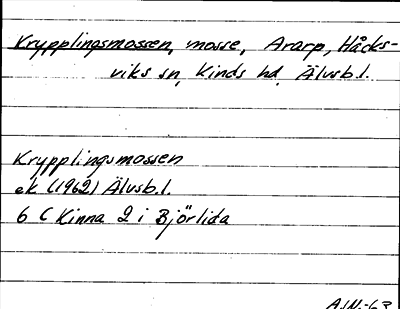 Krypplingsmossen, mosse, Ararp, Håcks-
viks sn, Kinds hd, Älvsb.l.
Krypplingsmossen
ek (1962) Älvsb.l.
6 C Kinna 2 i Björlida